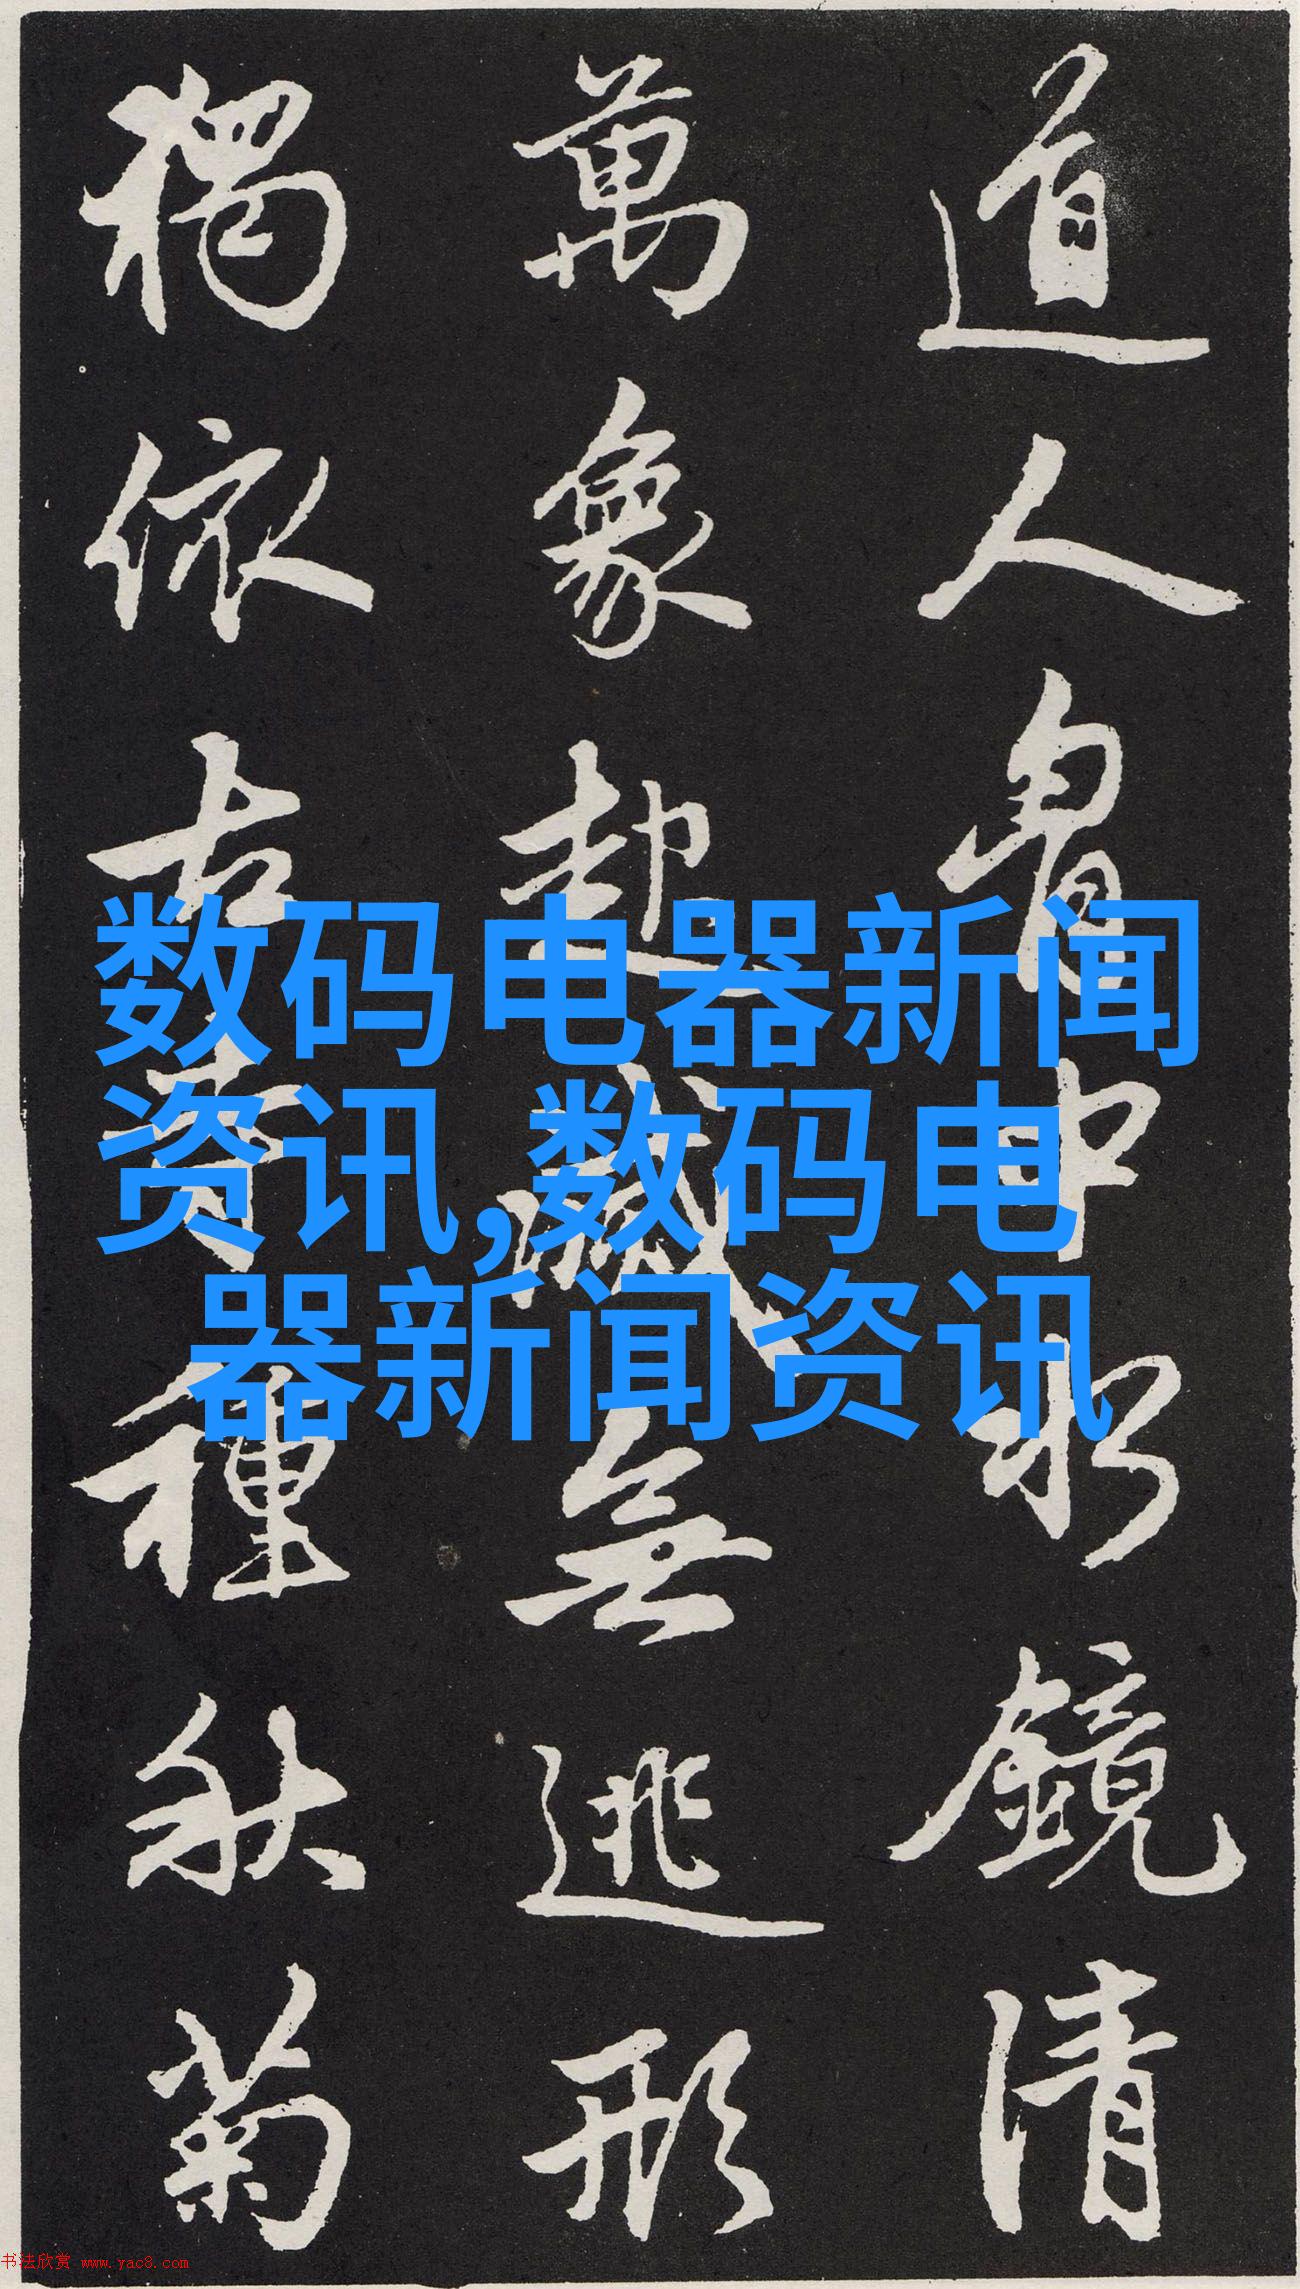 道人胸中水鏡清
萬象起滅無逃形
獨依古寺種秋菊
数码电器新闻
资讯,数码电
器新闻资讯
书法欣赏 www.yac8.com